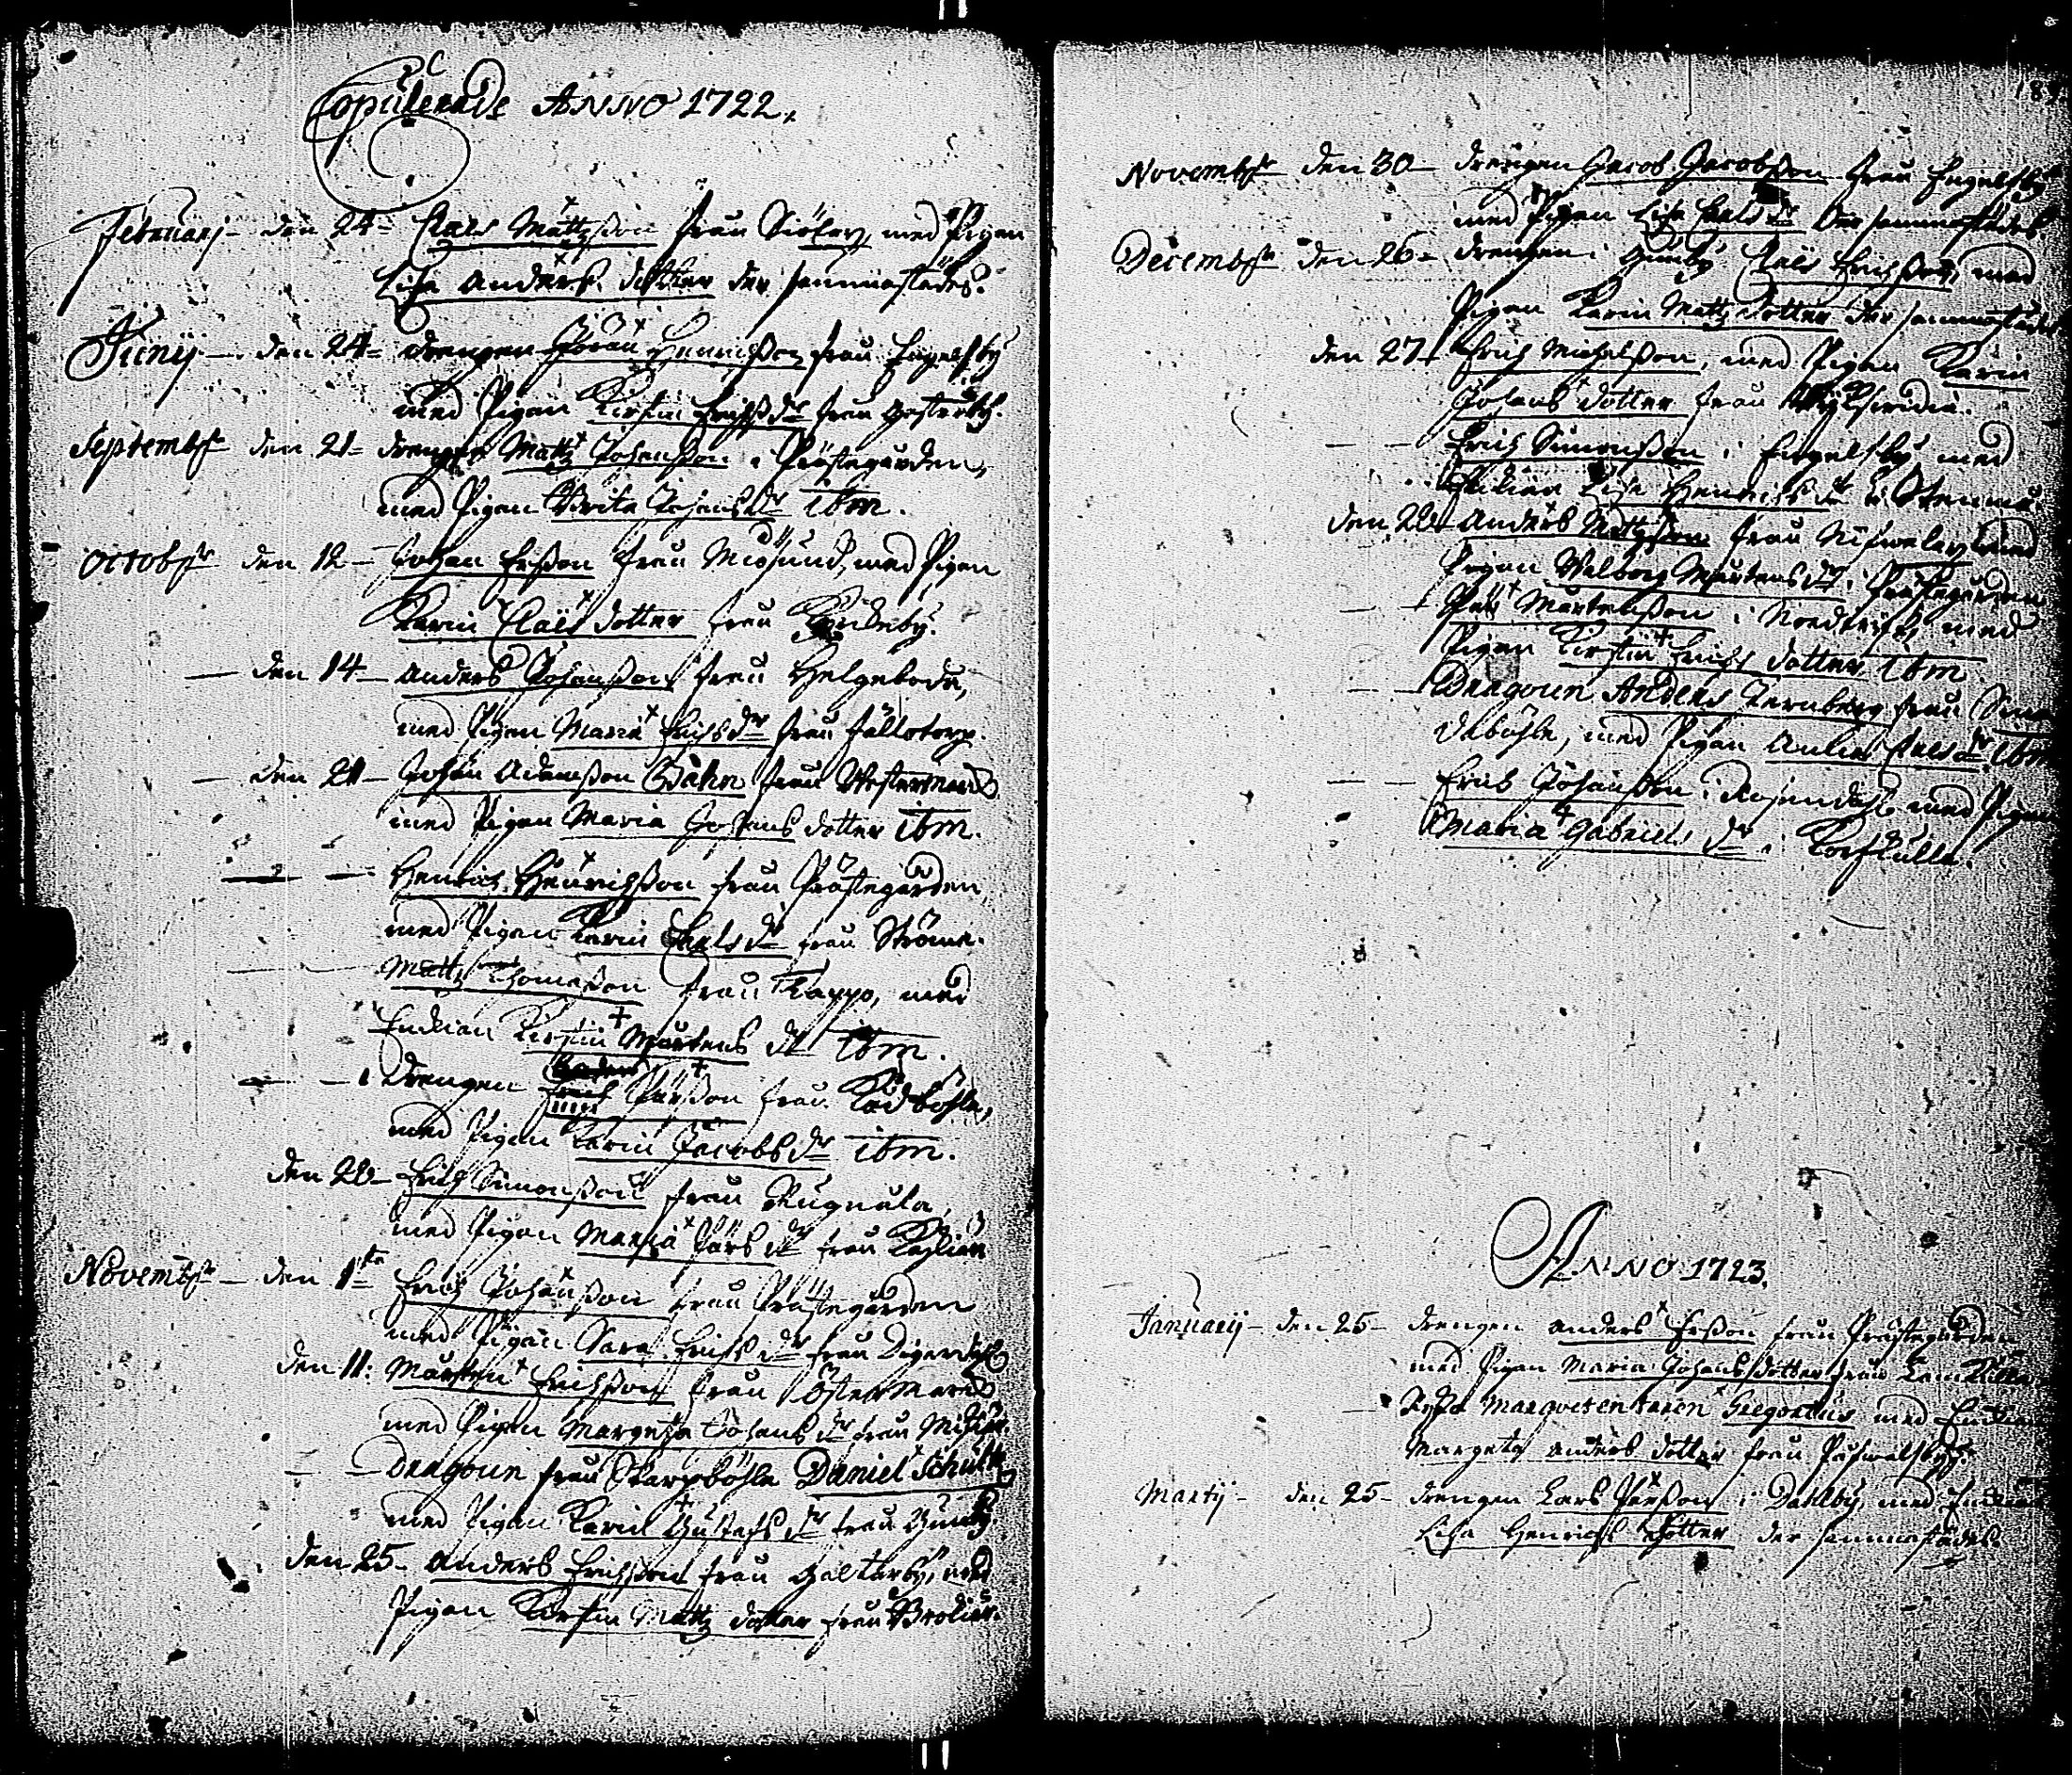 Copulerade ANNO 1722.
Februarij den 24 Claes Mattzßon från Siölax, med Pigan
Lisa Anders dotter der sammastädes.
Junij den 24 drengen Jöran Henrichßon från Engelsby
med Pigan Kirstin Erichs dr från Gesterby.
Septembr den 21 drengen Mattz Johanßon i Prästegården,
med Pigan Brita Johans dr ibm.
Octobr den 12 Johan Erßon från Miösund, med Pigan
Karin Claës dotter från
den 14 Anders Johanßon från Helgeboda,
med Pigan Maria Erichs dr från Fällotorp.
den 21 Johan Adamßon Dahn från Westermarck
med Pigan Maria Johans dotter ibm.
Henrich Henrichßon från Prästegården
med Pigan Karin Carls dr från Ströma.
Mattz Thomaßon från Tappo, med
Enckian Kirstin Mårtens dr ibm.
drengen Erich Pärßon från Rödböhle,
med Pigan Karin Jacobs dr ibm.
den 28 Erich Simonßon från Rugnula,
med Pigan Maria Pärs dr från
Novembr den 1ta Erich Johanßon från Prästegården
med Pigan Sara Erichs dr från
den 11: Mårten Erichßon från Östermarck
med Pigan Margeta Johans dr från
Dragoun från Skarpböhle Daniel Schult
med Pigan Karin Gustafs dr från Gunby.
den 25 Anders Erichßon från Galtarby, med
Pigan Kirstin Mattz dotter från
Novembr den 30 drengen Jacob Jacobßon från Engelsby
med Pigan Lisa Carls dr der sammastädes
Decembr den 26 drengen i Gunby Claës Erichßon, med
Pigan Karin Mattz dotter der sammastädes
den 27 Erich Michelßon, med Pigan Karin
Johans dotter från
Erich Simonßon i Engelsby med
Enckian Lisa Henrichs dr i
den 28 Anders Mattzßon från med
Pigan Walborg Mårtens dr i Prästegården
Pär Mårtenßon i med
Pigan Kirstin Erichs dotter ibm
Dragoun Anders Jernberg från
böhle, med Pigan Claes dr ibm
Erich Johanßon i Rosendahl med Pigan
Maria Gabriels dr i
ANNO 1723.
Januarij den 25 drengen Anders Erßon från Prästegården
med Pigan Maria Johans dotter från
Gregorius med Enckian
Margeta Anders dotter från
Martij den 25 drengen Lars Pärßon i Dahlby, med Enckian
Lisa Henrichs dotter der sammastädes.